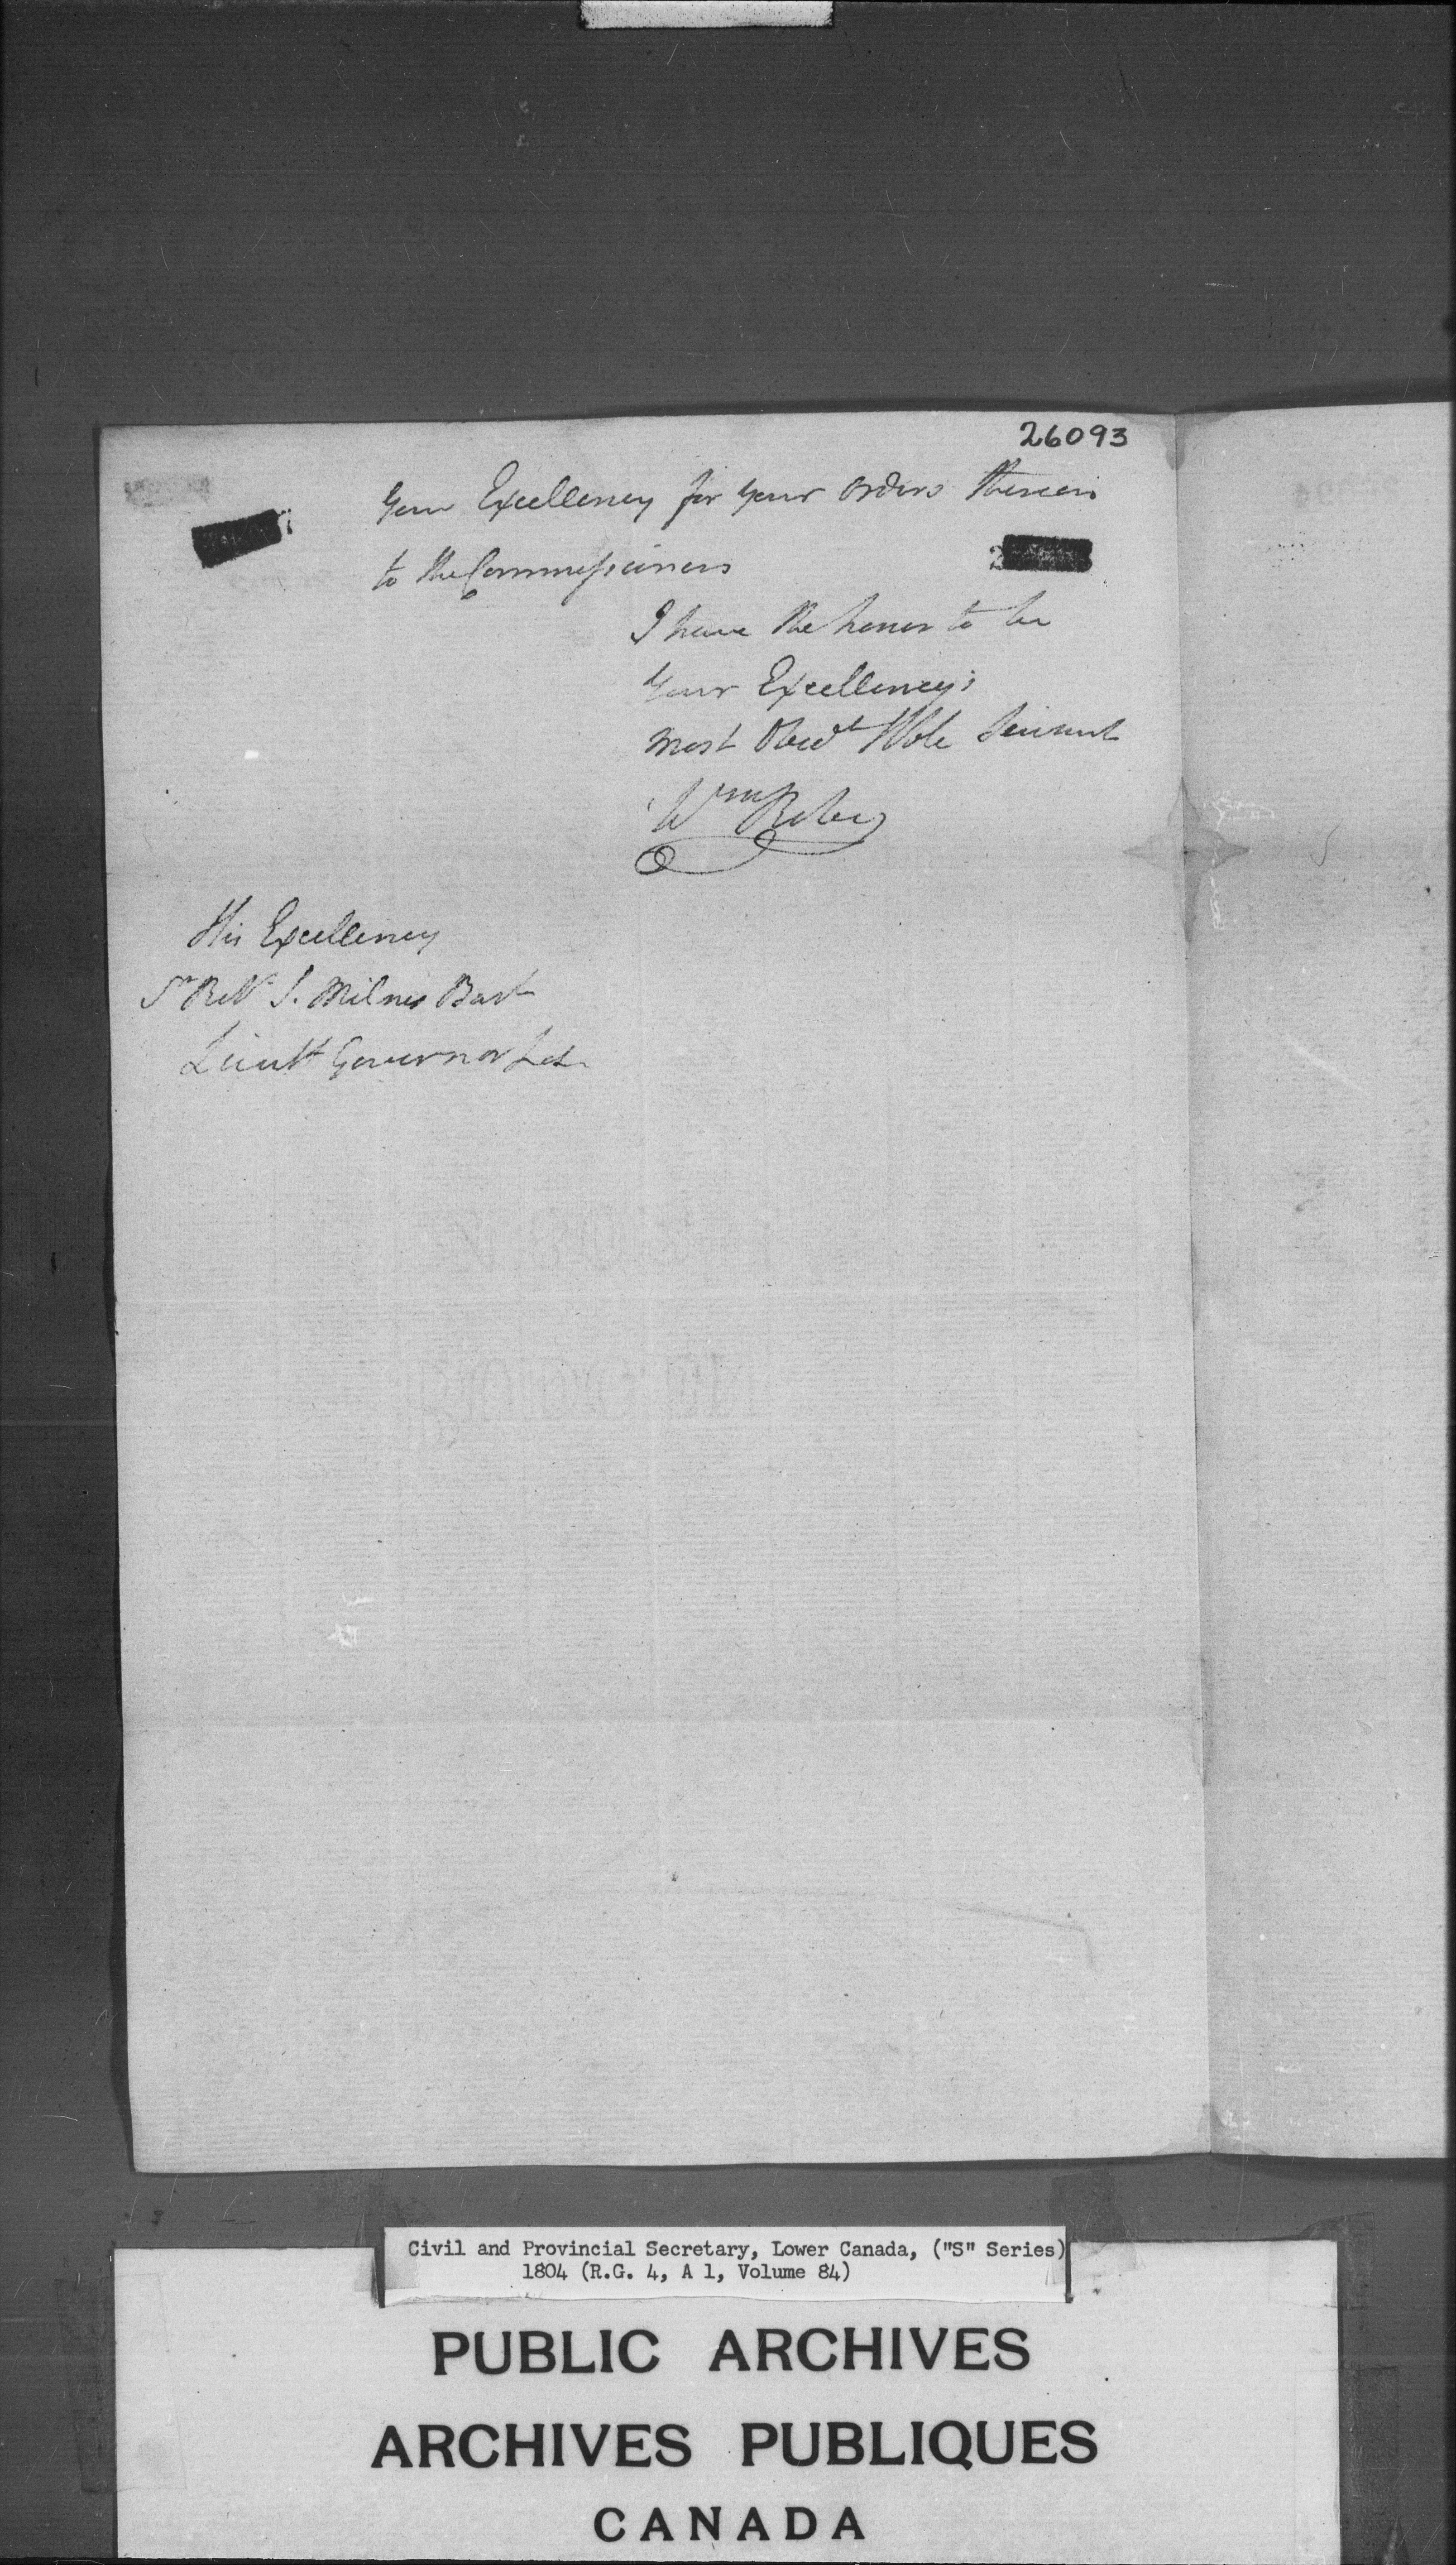 26093
Your Excellency for your orders thereon
to the Commissioners
I have the honor to be
Your Excellency's
most Obedt Hble Servant
Wm
His Excellency
Sr Rt S. Milnes Bart
Lieut Governor &c
Civil and Provincial Secretary, Lower Canada, ("S" Series)
1804 (R.G. 4, A 1, Volume 84)
PUBLIC ARCHIVES
ARCHIVES PUBLIQUES
CANADA